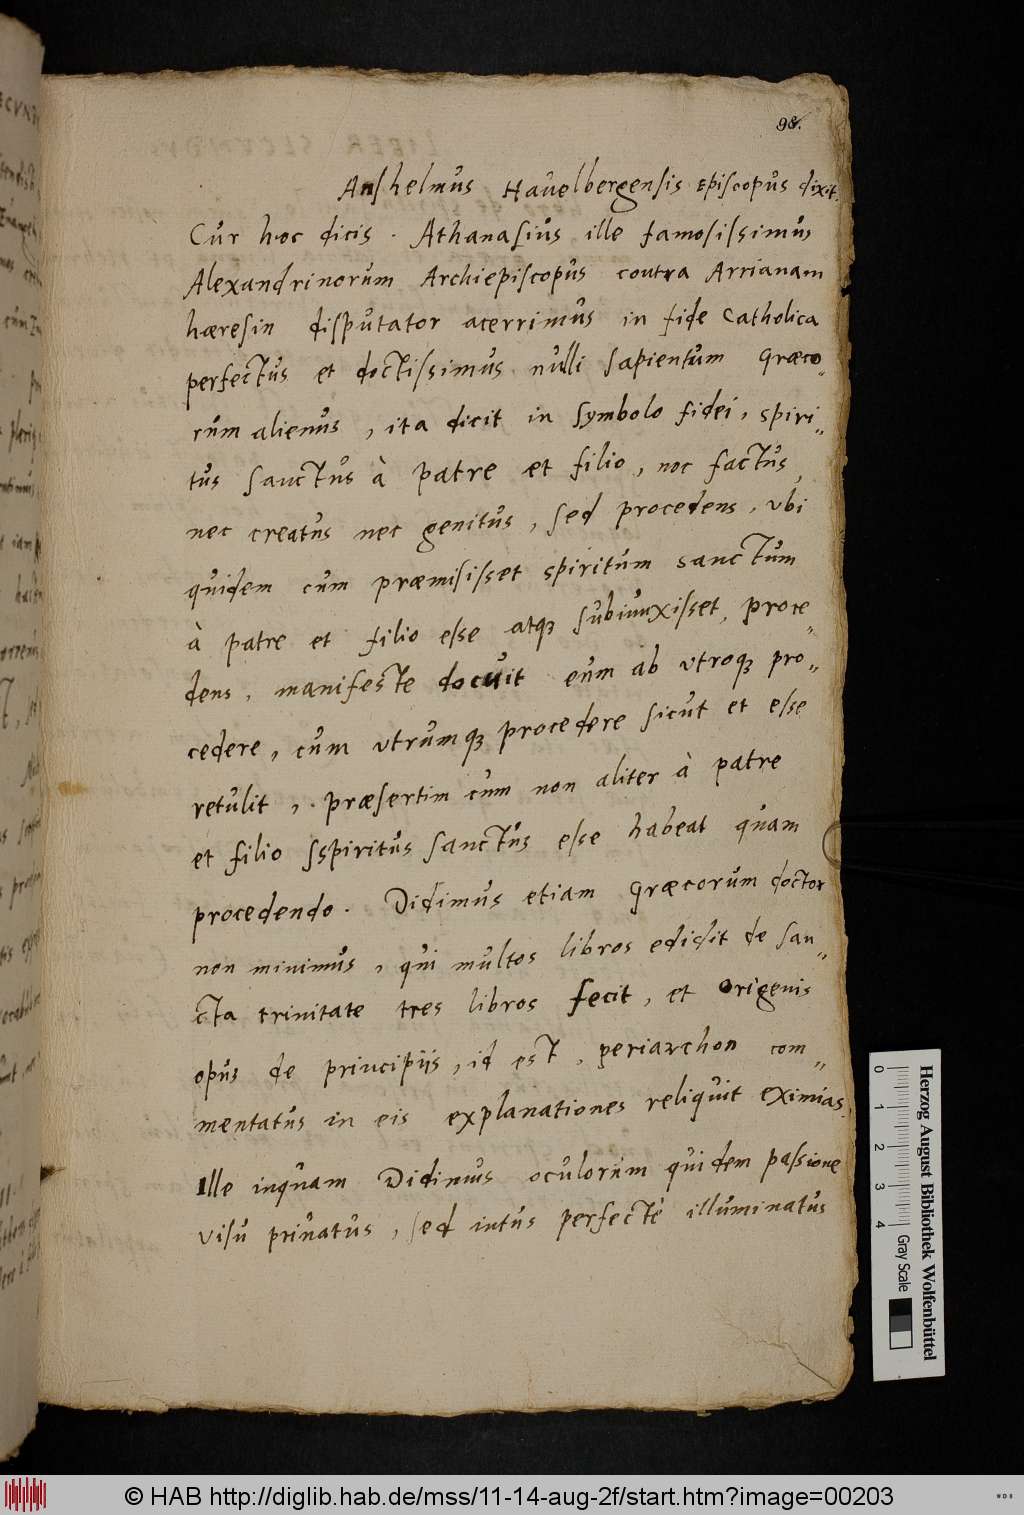 98.
Anshelmus Havelbergensis Episcopus dixit.
Cur hoc dicis. Athanasius ille famosissimus
Alexandrinorum Archiepiscopus contra Arrianam
hæresin disputator acerrimus in fide Catholica
perfectus et doctissimus nulli sapientum Græco„
rum alienus, ita dicit in symbolo fidei, spiri„
tus sanctus à patre et filio, nec factus,
nec creatus nec genitus, sed procedens, vbi
quidem cum præmisisset spiritum sanctum
à patre et filio esse atqꝫ subiunxisset, proce„
dens, manifeste docuit eum ab vtroqꝫ pro„
cedere, cum vtrumqꝫ procedere sicut et esse
retulit, præsertim cum non aliter à patre
et filio sspiritus sanctus esse habeat quam
procedendo. Didimus etiam Græcorum doctor
non minimus, qui multos libros edidit de san„
cta trinitate tres libros fecit, et Origenis
opus de principijs, id est, periarchon com„
mentatus in eis explanationes reliquit eximias.
Ille inquam Didimus oculorum quidem passione
visu priuatus, sed intus perfectè illuminatus
Herzog August Bibliothek Wolfenbüttel
0 1 2 3 4 Gray Scale
© HAB http://diglib.hab.de/mss/11-14-aug-2f/start.htm?image=00203